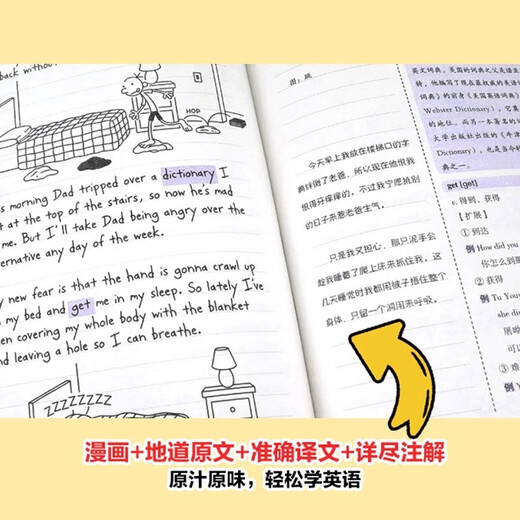 back without
HOP
s morning Dad tripped over a dictionary I
t at the top of the stairs, so now he's mad
me. But I'll take Dad being angry over the
ernative any day of the week.
y new fear is that the hand is gonna crawl up
my bed and get me in my sleep. So lately I've
en covering my whole body with the blanket
nd leaving a hole so I can breathe.
ZZZZZZZZ
图：跳
今天早上我放在楼梯口的字
典绊倒了老爸，所以现在他恨我
恨得牙痒痒的，不过我宁愿挑别
的日子来惹老爸生气。
只是我又担心，那只泥手会
趁我睡着了爬上床来抓住我，这
几天睡觉时我都用绒子捂住整个
身体，只留一个洞用来呼吸。
英文词典，美国的词典之父是诺亚
特，他编写了现在最权威的英语
词典》的前身《美国英语词典》
Webster Dictionary)，它
的地位。而另一本著名的
大学出版社出版的《牛津
Dictionary)，也是当今
典之一。
get [get]
v. 得到，获得
【扩展】
① 到达
例 How did you
你怎么到那
② 获得
例 To Your
she di
居然
③ 难
例
漫画+地道原文+准确译文+详尽注解
原汁原味，轻松学英语